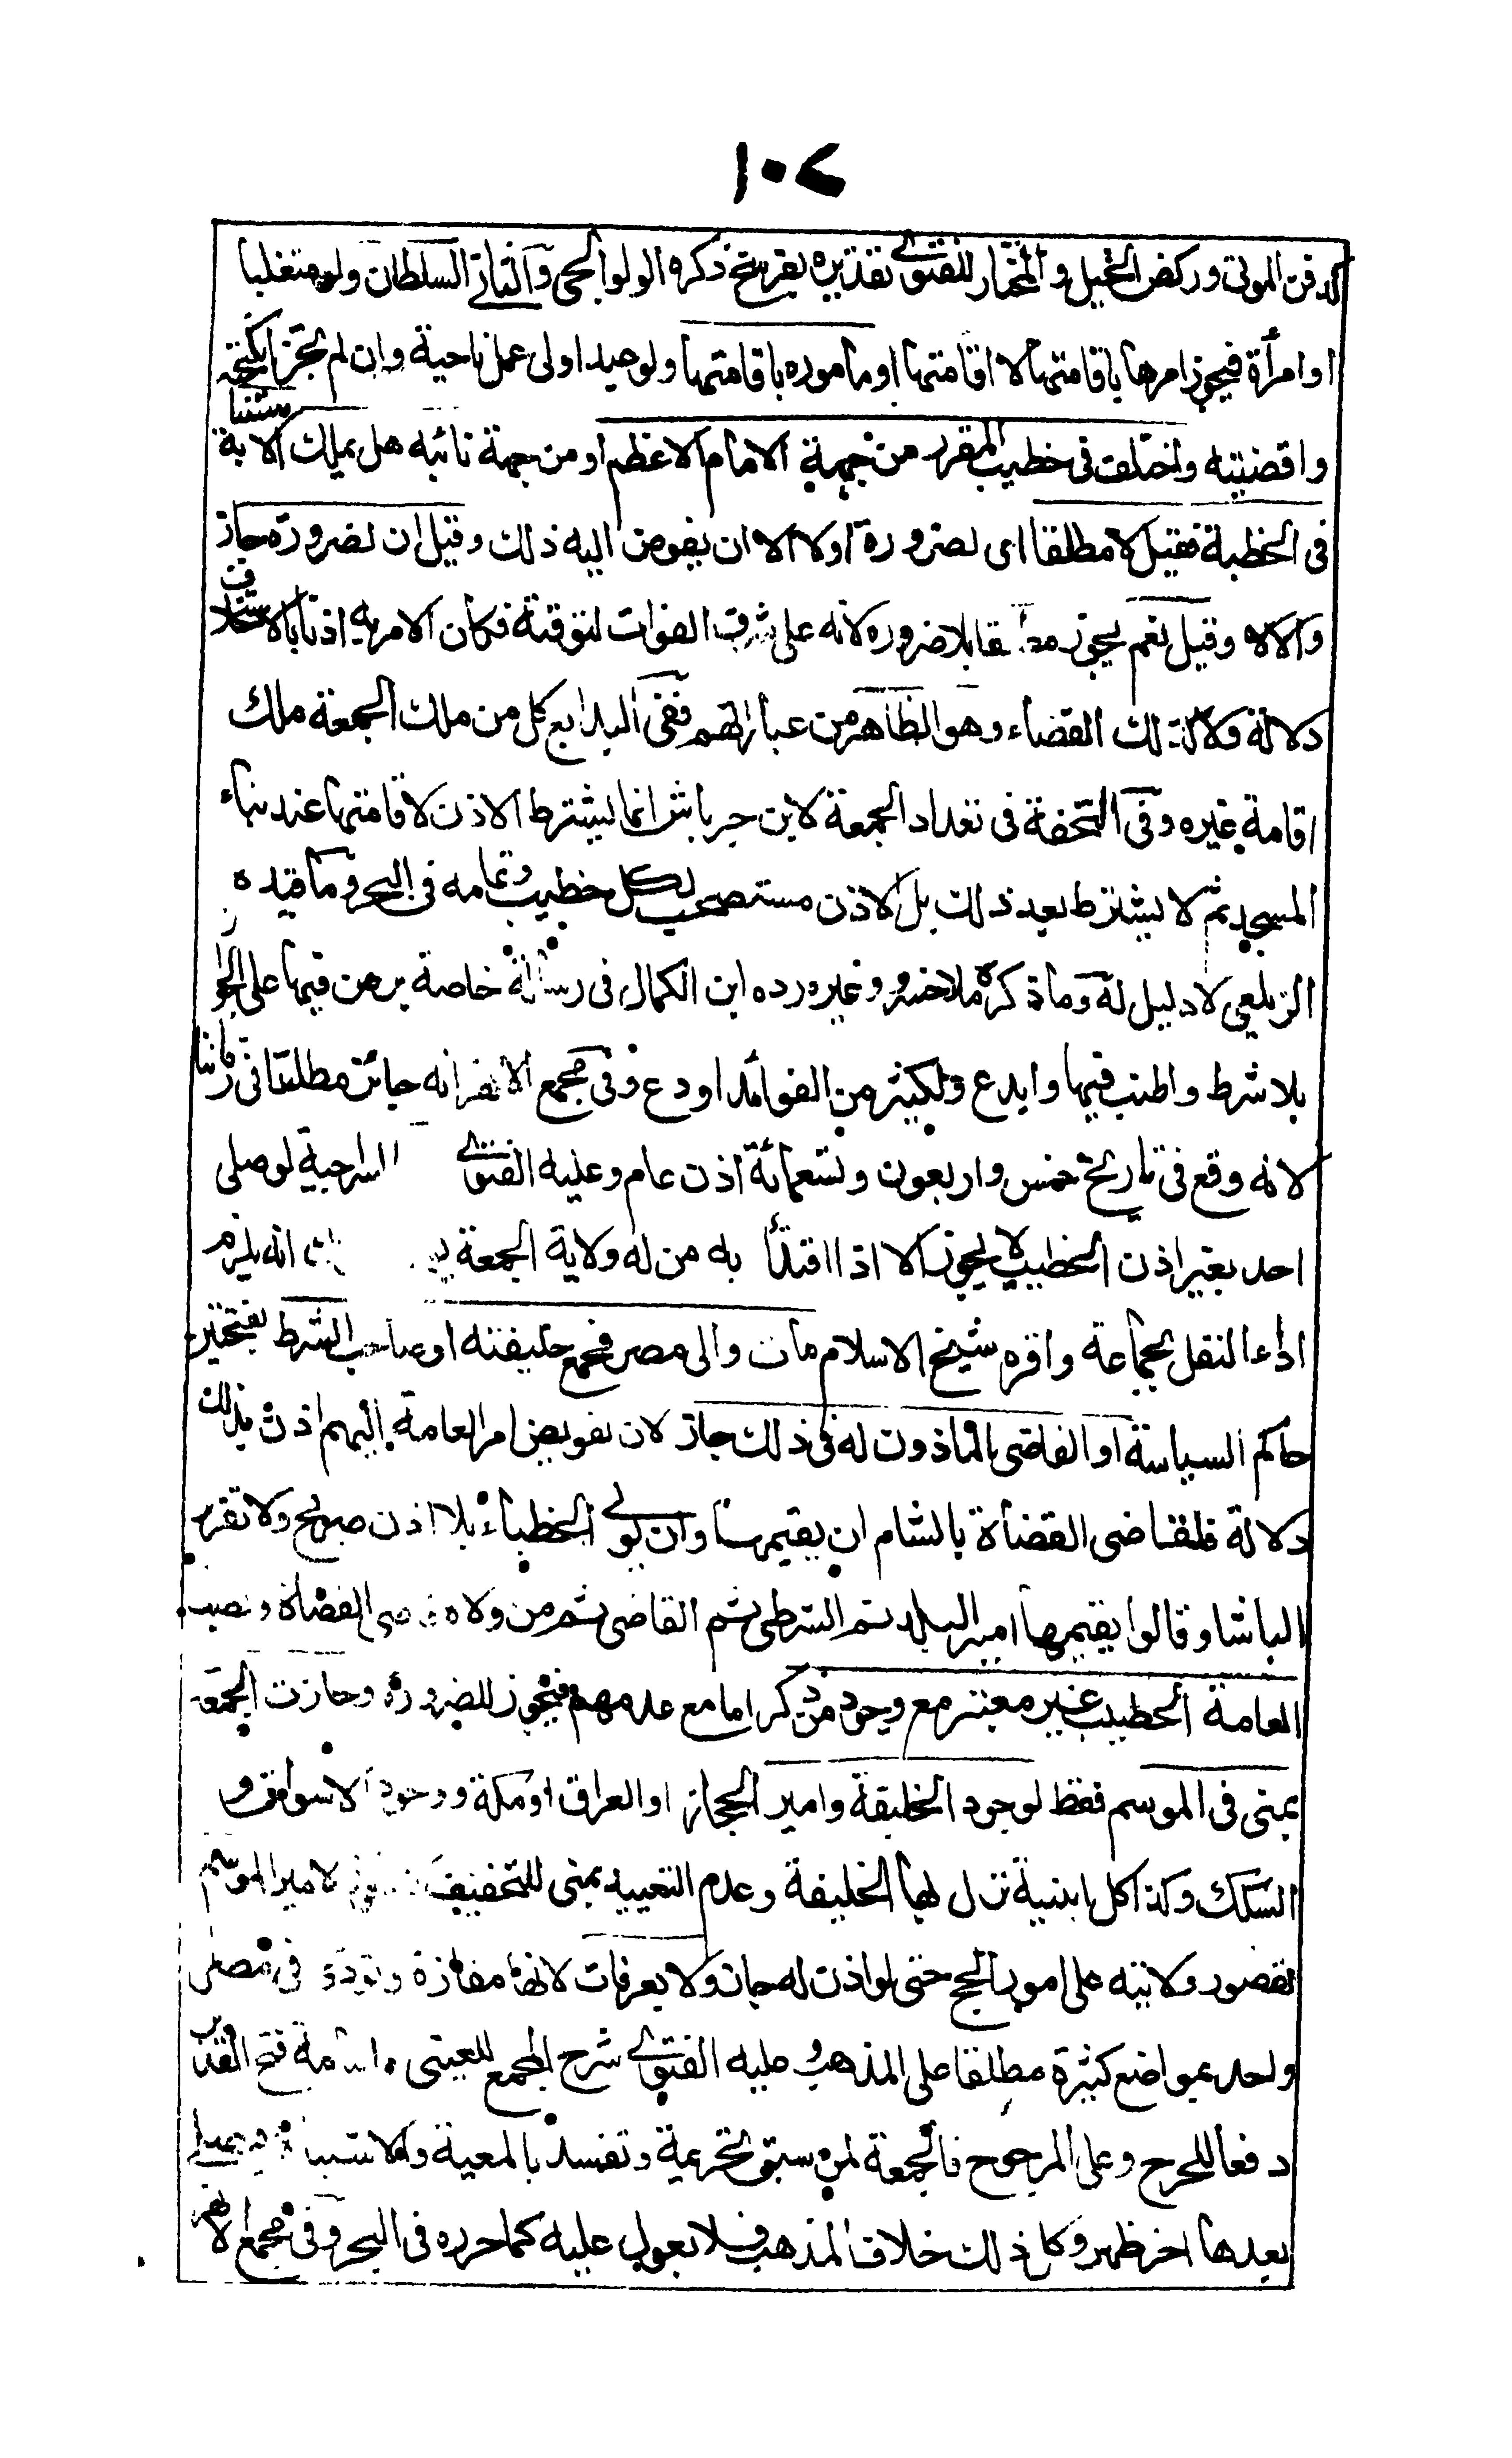 ١٠٢
لدفن الموتى وركض الخيل والمختار للفتوى تقديره بفرسخ ذكره الولوالجى والثانى السلطان ولو متغلبا
او امرأة فيجوز امرها باقامتها لا اقامتها او مأموره باقامتها ولو عبدا ولى عمل ناحية وان لم تجز انكحته
واقضيته واختلف فى خطيب المقرر من جهة الامام الاعظم او من جهة نائبه هل يملك الاستنابة
فى الخطبة فقيل لا مطلقا اى لضرورة اولا الا ان يفوض اليه ذلك وقيل ان لضرورة جاز
والا لا وقيل نعم يجوز مطلقا بلا ضرورة لانه على شرف الفوات لتوقته فكان الامر به اذنا بالاستخلاف
دلالة ولا كذلك القضاء وهو الظاهر من عباراتهم ففى البدايع كل من ملك الجمعة ملك
اقامة غيره وفى التحفة فى تعداد الجمعة لابن جرباش انما يشترط الاذن لاقامتها عند بناء
المسجد ثم لا يشترط بعد ذلك بل الاذن مستصحب لكل خطيب وتمامه فى البحر وما قيده
الزيلعى لا دليل له وما ذكره ملاخسرو وغيره رده ابن الكمال فى رسالة خاصة برهن فيها على الجواز
بلا شرط واطنب فيها وابدع ولكثير من الفوائد اودع وفى مجمع الانهر انه جائز مطلقا فى زماننا
لانه وقع فى تاريخ خمس واربعون وتسعمائة اذن عام وعليه الفتوى السراجية لو صلى
احد بغير اذن الخطيب لا يجوز الا اذا اقتدأ به من له ولاية الجمعة انه يلزم
اداء النفل بجماعة واقره شيخ الاسلام مات والى مصر فجمع خليفته او صاحب الشرط بفتحتين
حاكم السياسة او القاضى المأذون له فى ذلك جاز لان تفويض امر العامة اليهم اذن بذلك
دلالة فلقاضى القضاة بالشام ان يقيمها وان يولى الخطباء بلا اذن صريح ولا تقرير
الباشا وقالوا يقيمها امير البلد ثم الشرطى ثم القاضى ثم من ولاه قاضى القضاة ونصب
العامة الخطيب غير معتبر مع وجود من ذكر اما مع عدمهم فيجوز للضرورة وجازت الجمعة
بمنى فى الموسم فقط لوجود الخليقة وامير الحجاز او العراق او مكة ووجود الاسواق و
السكك وكذا كل ابنية نزل لها الخليفة وعدم التعييد بمنى للتخفيف لا امير الموسم
لقصور ولايته على امور الحج حتى لو اذن له جاز ولا بعرفات لانها مفازة وتؤدى فى مصر
واحد بمواضع كثيرة مطلقا على المذهب وعليه الفتوى شرح المجمع للعينى وامامة فتح القدير
دفعا للحرج وعلى المرجوح فالجمعة لمن سبق تحريمة وتفسد بالمعية والاشتباه فيصلى
بعدها اخر ظهر وكل ذلك خلاف المذهب فلا يعول عليه كما حرره فى البحر وفى مجمع الانهر